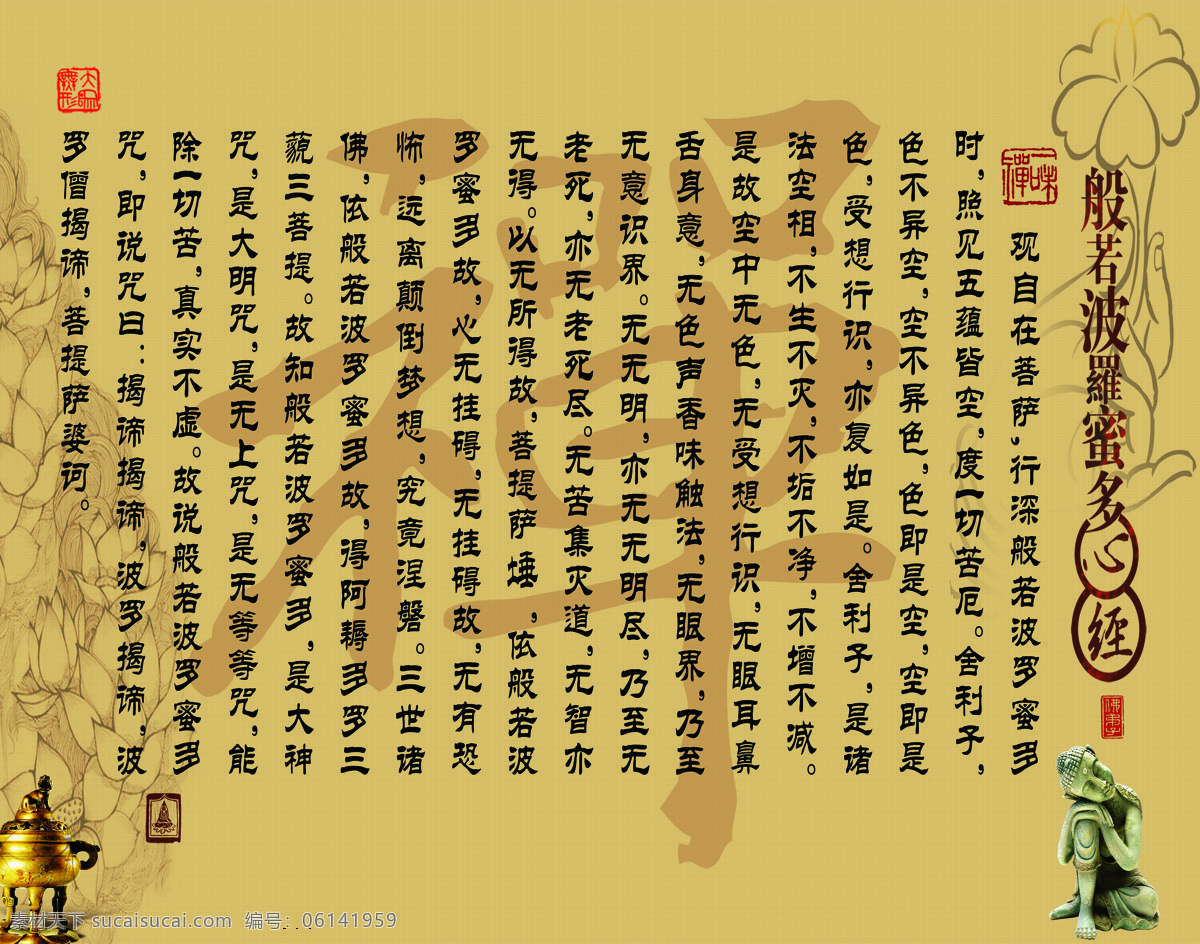 般若波羅蜜多心經
佛弟子
一味禪
禪
观自在菩萨,行深般若波罗蜜多
时,照见五蕴皆空,度一切苦厄。舍利子,
色不异空,空不异色,色即是空,空即是
色,受想行识,亦复如是。舍利子,是诸
法空相,不生不灭,不垢不净,不增不减。
是故空中无色,无受想行识,无眼耳鼻
舌身意,无色声香味触法,无眼界,乃至
无意识界。无无明,亦无无明尽,乃至无
老死,亦无老死尽。无苦集灭道,无智亦
无得。以无所得故,菩提萨埵,依般若波
罗蜜多故,心无挂碍,无挂碍故,无有恐
怖,远离颠倒梦想,究竟涅磐。三世诸
佛,依般若波罗蜜多故,得阿耨多罗三
藐三菩提。故知般若波罗蜜多,是大神
咒,是大明咒,是无上咒,是无等等咒,能
除一切苦,真实不虚。故说般若波罗蜜多
咒,即说咒曰:揭谛揭谛,波罗揭谛,波
罗僧揭谛,菩提萨婆诃。
素材天下 sucaisucai.com 编号:06141959